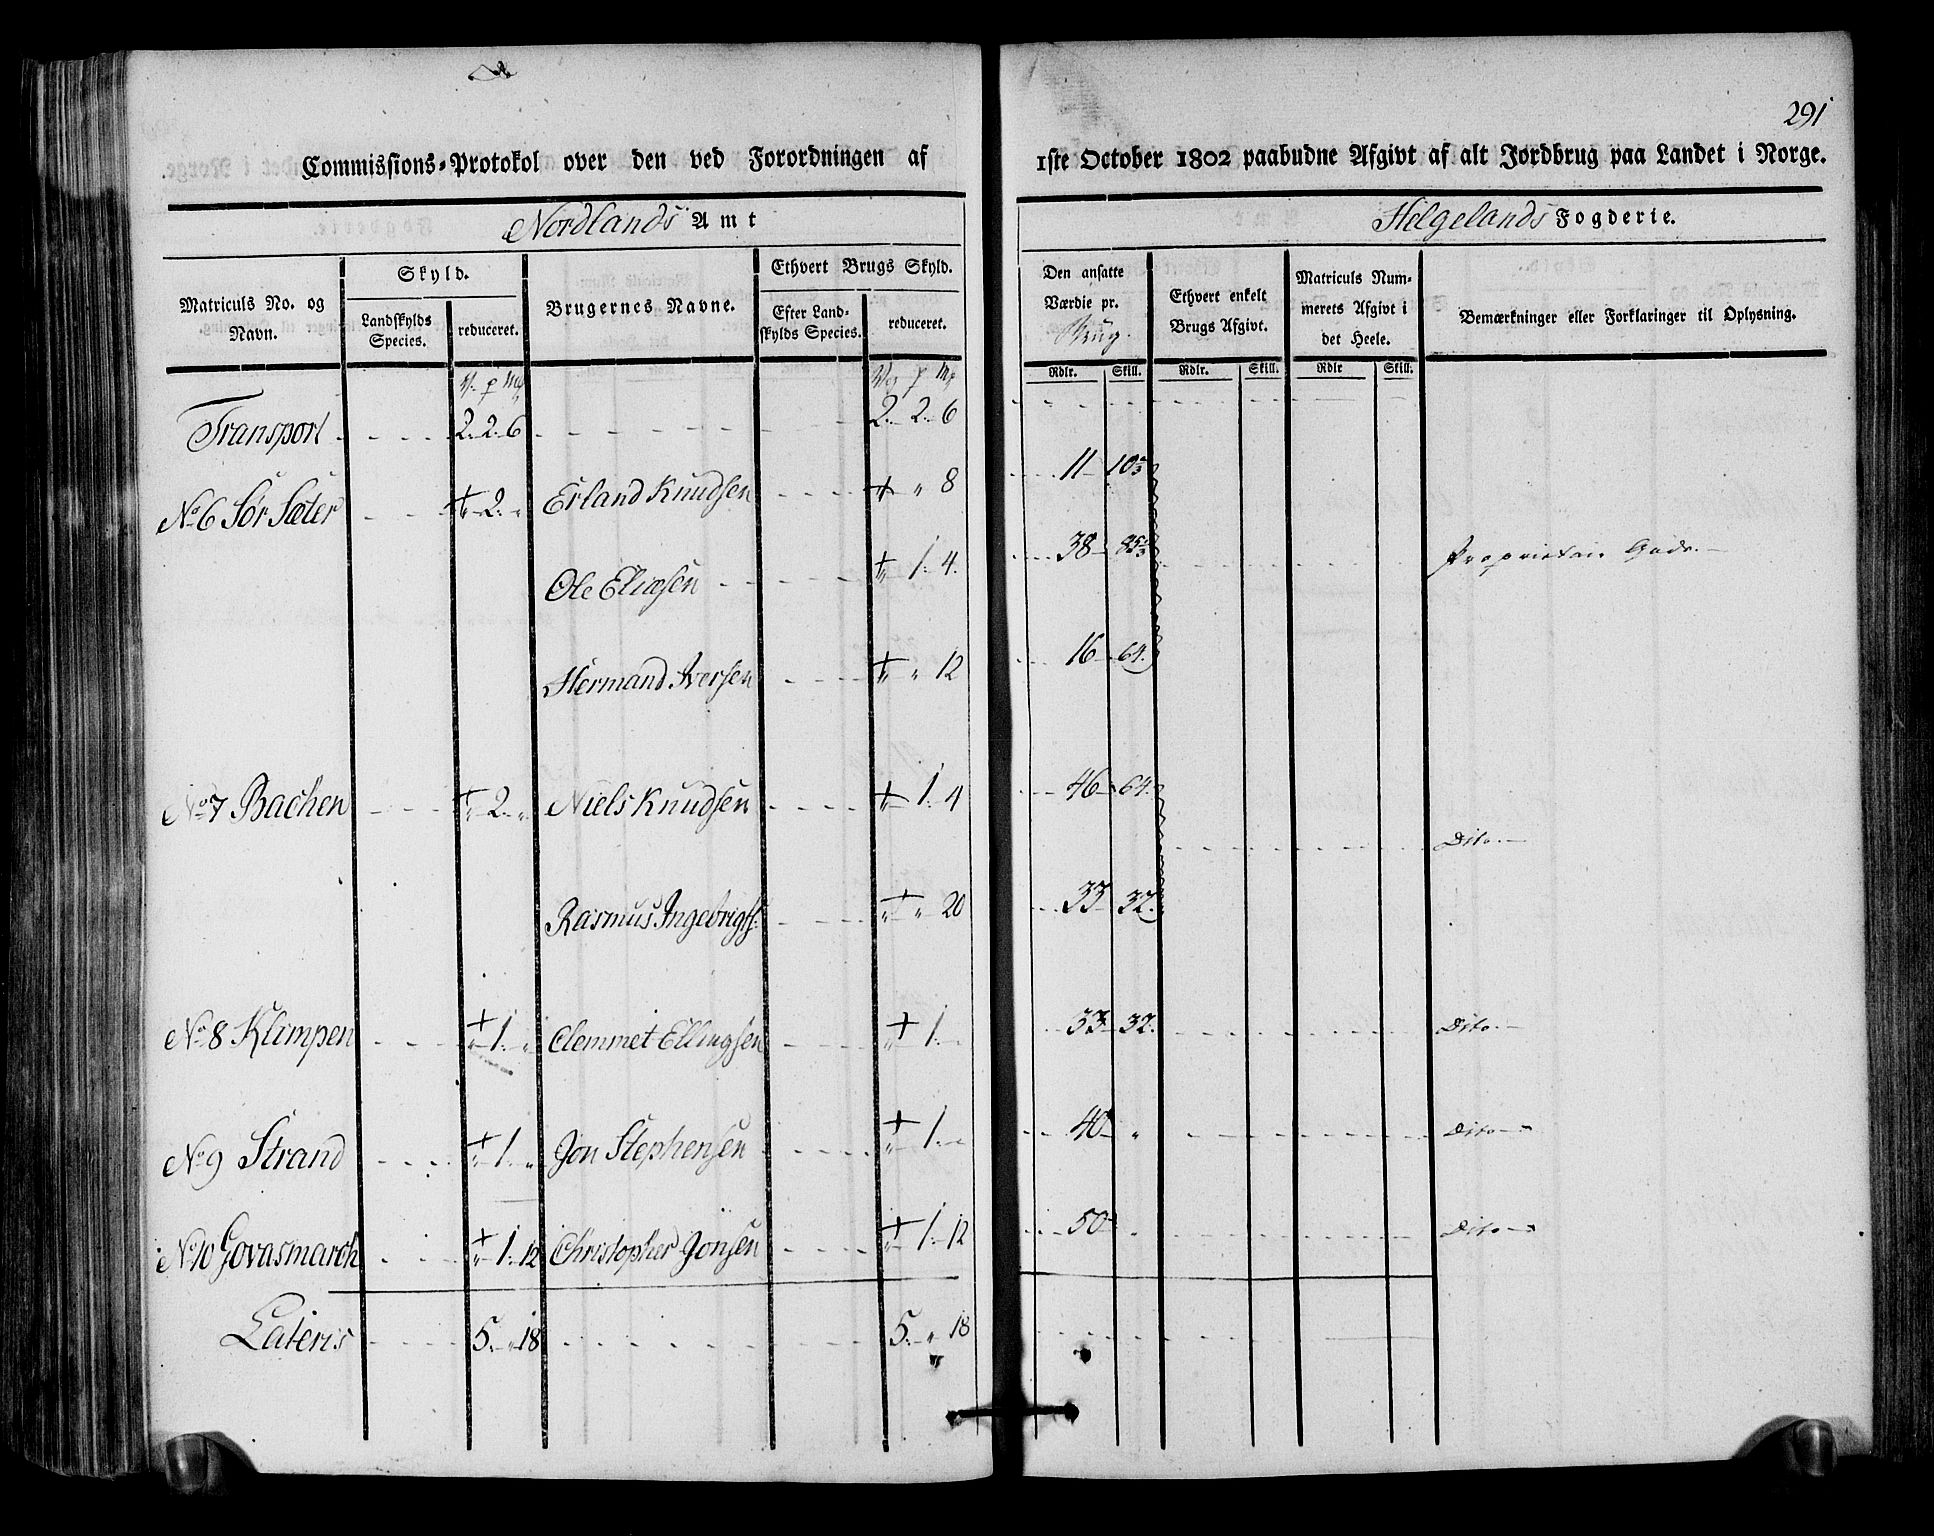 291
Commissions-Protokol over den ved Forordningen af 1ste October 1802 paabudne Afgivt af alt Jordbrug paa Landet i Norge.
Nordlands Amt Helgelands Fogderie.
Matriculs No. og Navn. Skyld. Landskylds Species. reduceret. Brugernes Navne. Ethvert Brugs Skyld. Efter Landskylds Species. reduceret. Den ansatte Værdie pr. Brug. Ethvert enkelt Brugs Afgivt. Matriculs Nummerets Afgivt i det Heele. Bemærkninger eller Forklaringer til Oplysning.
Rdlr. Skill. Rdlr. Skill. Rdlr Skill.
Transport 2. 2. 6 2. 2. 6
No 6 Sør Sæter " 2. " Erland Knudsen " " 8 11 10⅔
Ole Eliæsen " 1. 4. 38 85⅓ Proprietair Gods.
Hermand Iversen " " 12 16 64.
No 7 Bachen " 2. " Niels Knudsen " 1. 4 46 64. Dito.
Rasmus Ingebrigts: " " 20 33 32.
No 8 Klimpen " 1. " Clemmet Ellingsen " 1. 33 32. Dito.
No 9 Strand " 1. " Jon Stephensen " 1. 40 " Dito
No 10 Govasmarch " 1. 12 Christopher Jonsen " 1. 12 50 " Dito
Lateris 5. " 18 5. " 18